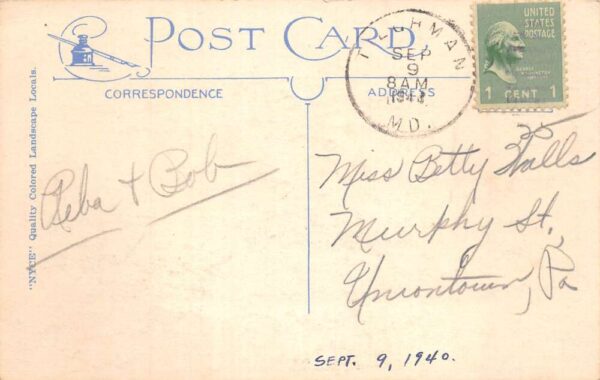 POST CARD
CORRESPONDENCE
ADDRESS
"NYCE" Quality Colored Landscape Locals.
TILGHMAN
SEP
9
8 AM
M.D.
UNITED
STATES
POSTAGE
1 CENT 1
Reba & Bob
Miss Betty Walls
35
Murphy St,
Uniontown, Pa
SEPT. 9, 1940.